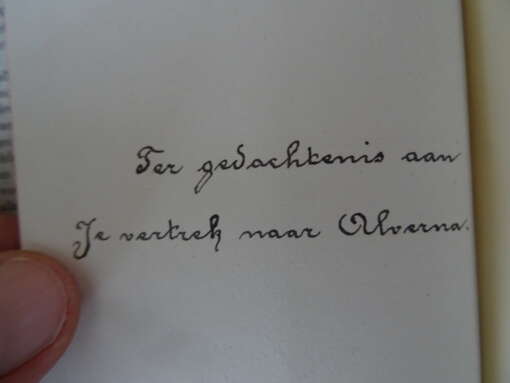 Ter gedachtenis aan
Je vertrek naar Alverna.